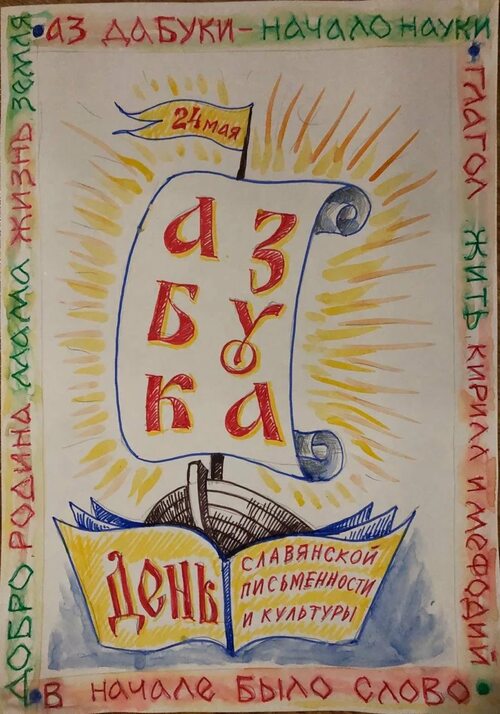 АЗ ДА БУКИ - НАЧАЛО НАУКИ
ГЛАГОЛ ЖИТЬ КИРИЛЛ И МЕФОДИЙ
В НАЧАЛЕ БЫЛО СЛОВО
ДОБРО, РОДИНА, МАМА ЖИЗНЬ ЗЕМЛЯ
24 мая
АЗ
БУ
КА
ДЕНЬ
СЛАВЯНСКОЙ
ПИСЬМЕННОСТИ
И КУЛЬТУРЫ